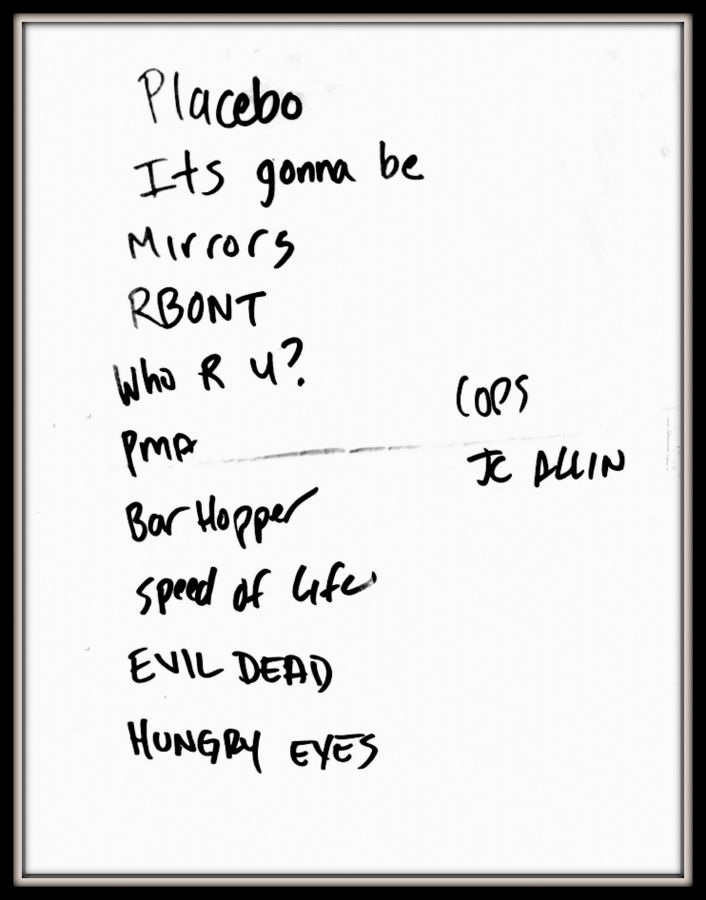 Placebo
Its gonna be
Mirrors
RBONT
Who R U?
PMA
Bar Hopper
Speed of Life
EVIL DEAD
HUNGRY EYES
COPS
JC ALLIN